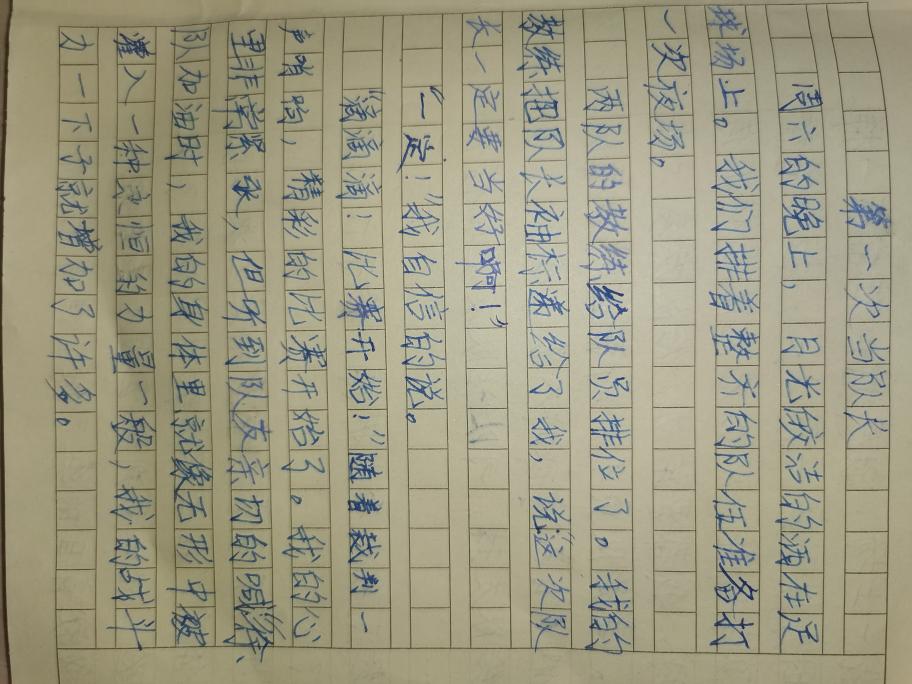 第一次当队长
周六的晚上，月光皎洁的洒在足
球场上。我们排着整齐的队伍准备打
一次夜场。
两队的教练给队员排位了。我的
教练把队长袖标递给了我，说"这次队
长一定要当好啊！"
"一定！"我自信的说。
"滴滴滴！比赛开始！"随着裁判一
声哨响，精彩的比赛开始了。我的心
里非常紧张，但听到队友亲切的喊"徐
队加油时，我的身体里就像无形中被
灌入一种 力量一般，我的战斗
力一下子就增加了许多。